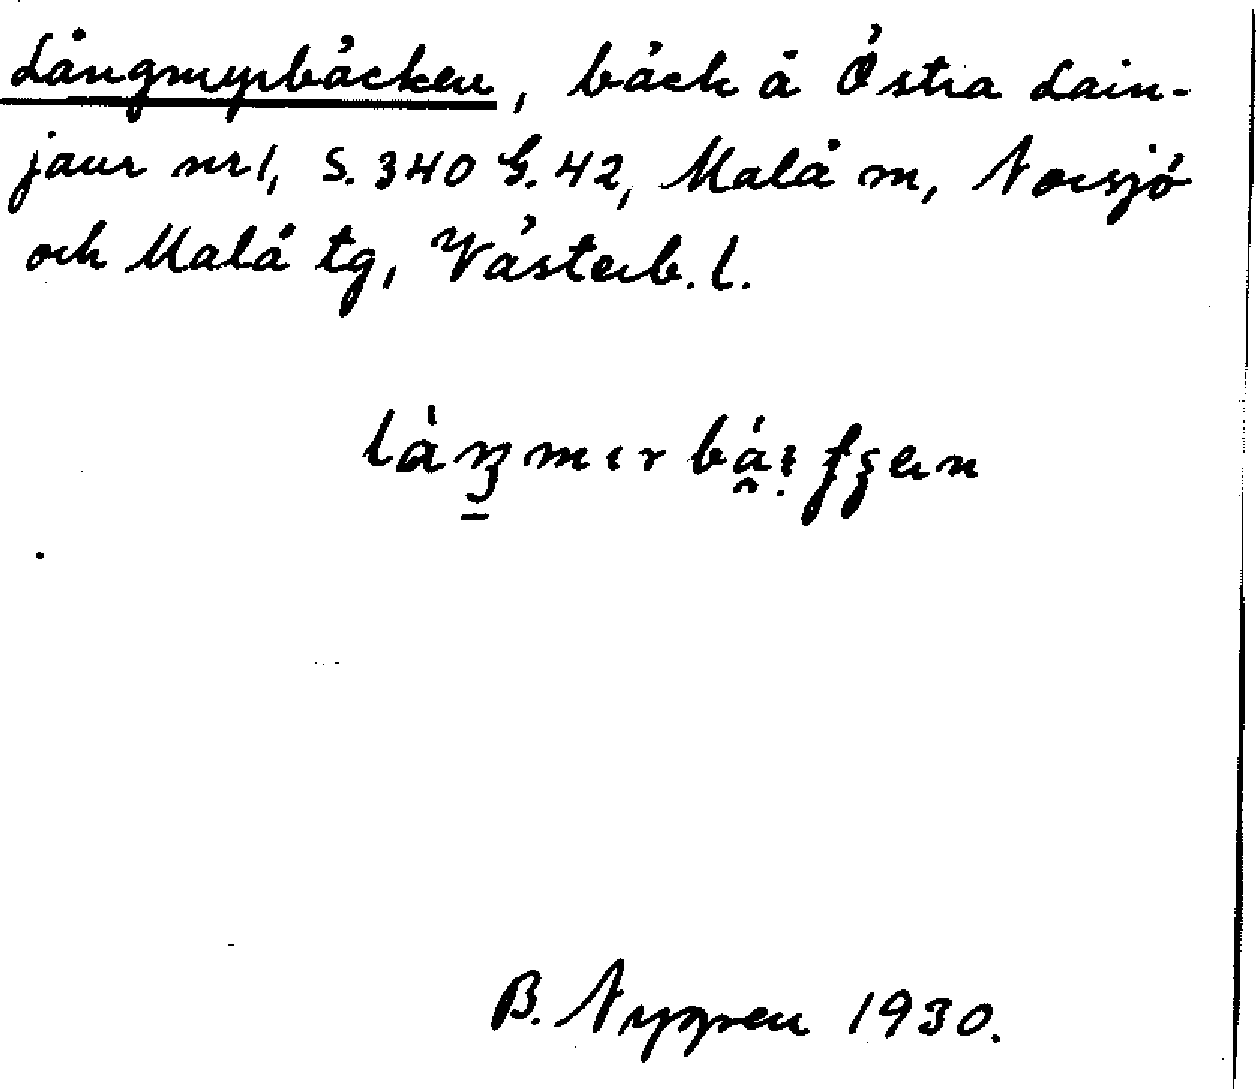 Långmyrbäcken, bäck å Östra Lain-
jaur nr 1, S. 340 G. 42, Malå m, Norsjö
och Malå tg, Västerb. l.
B. Nygren 1930.